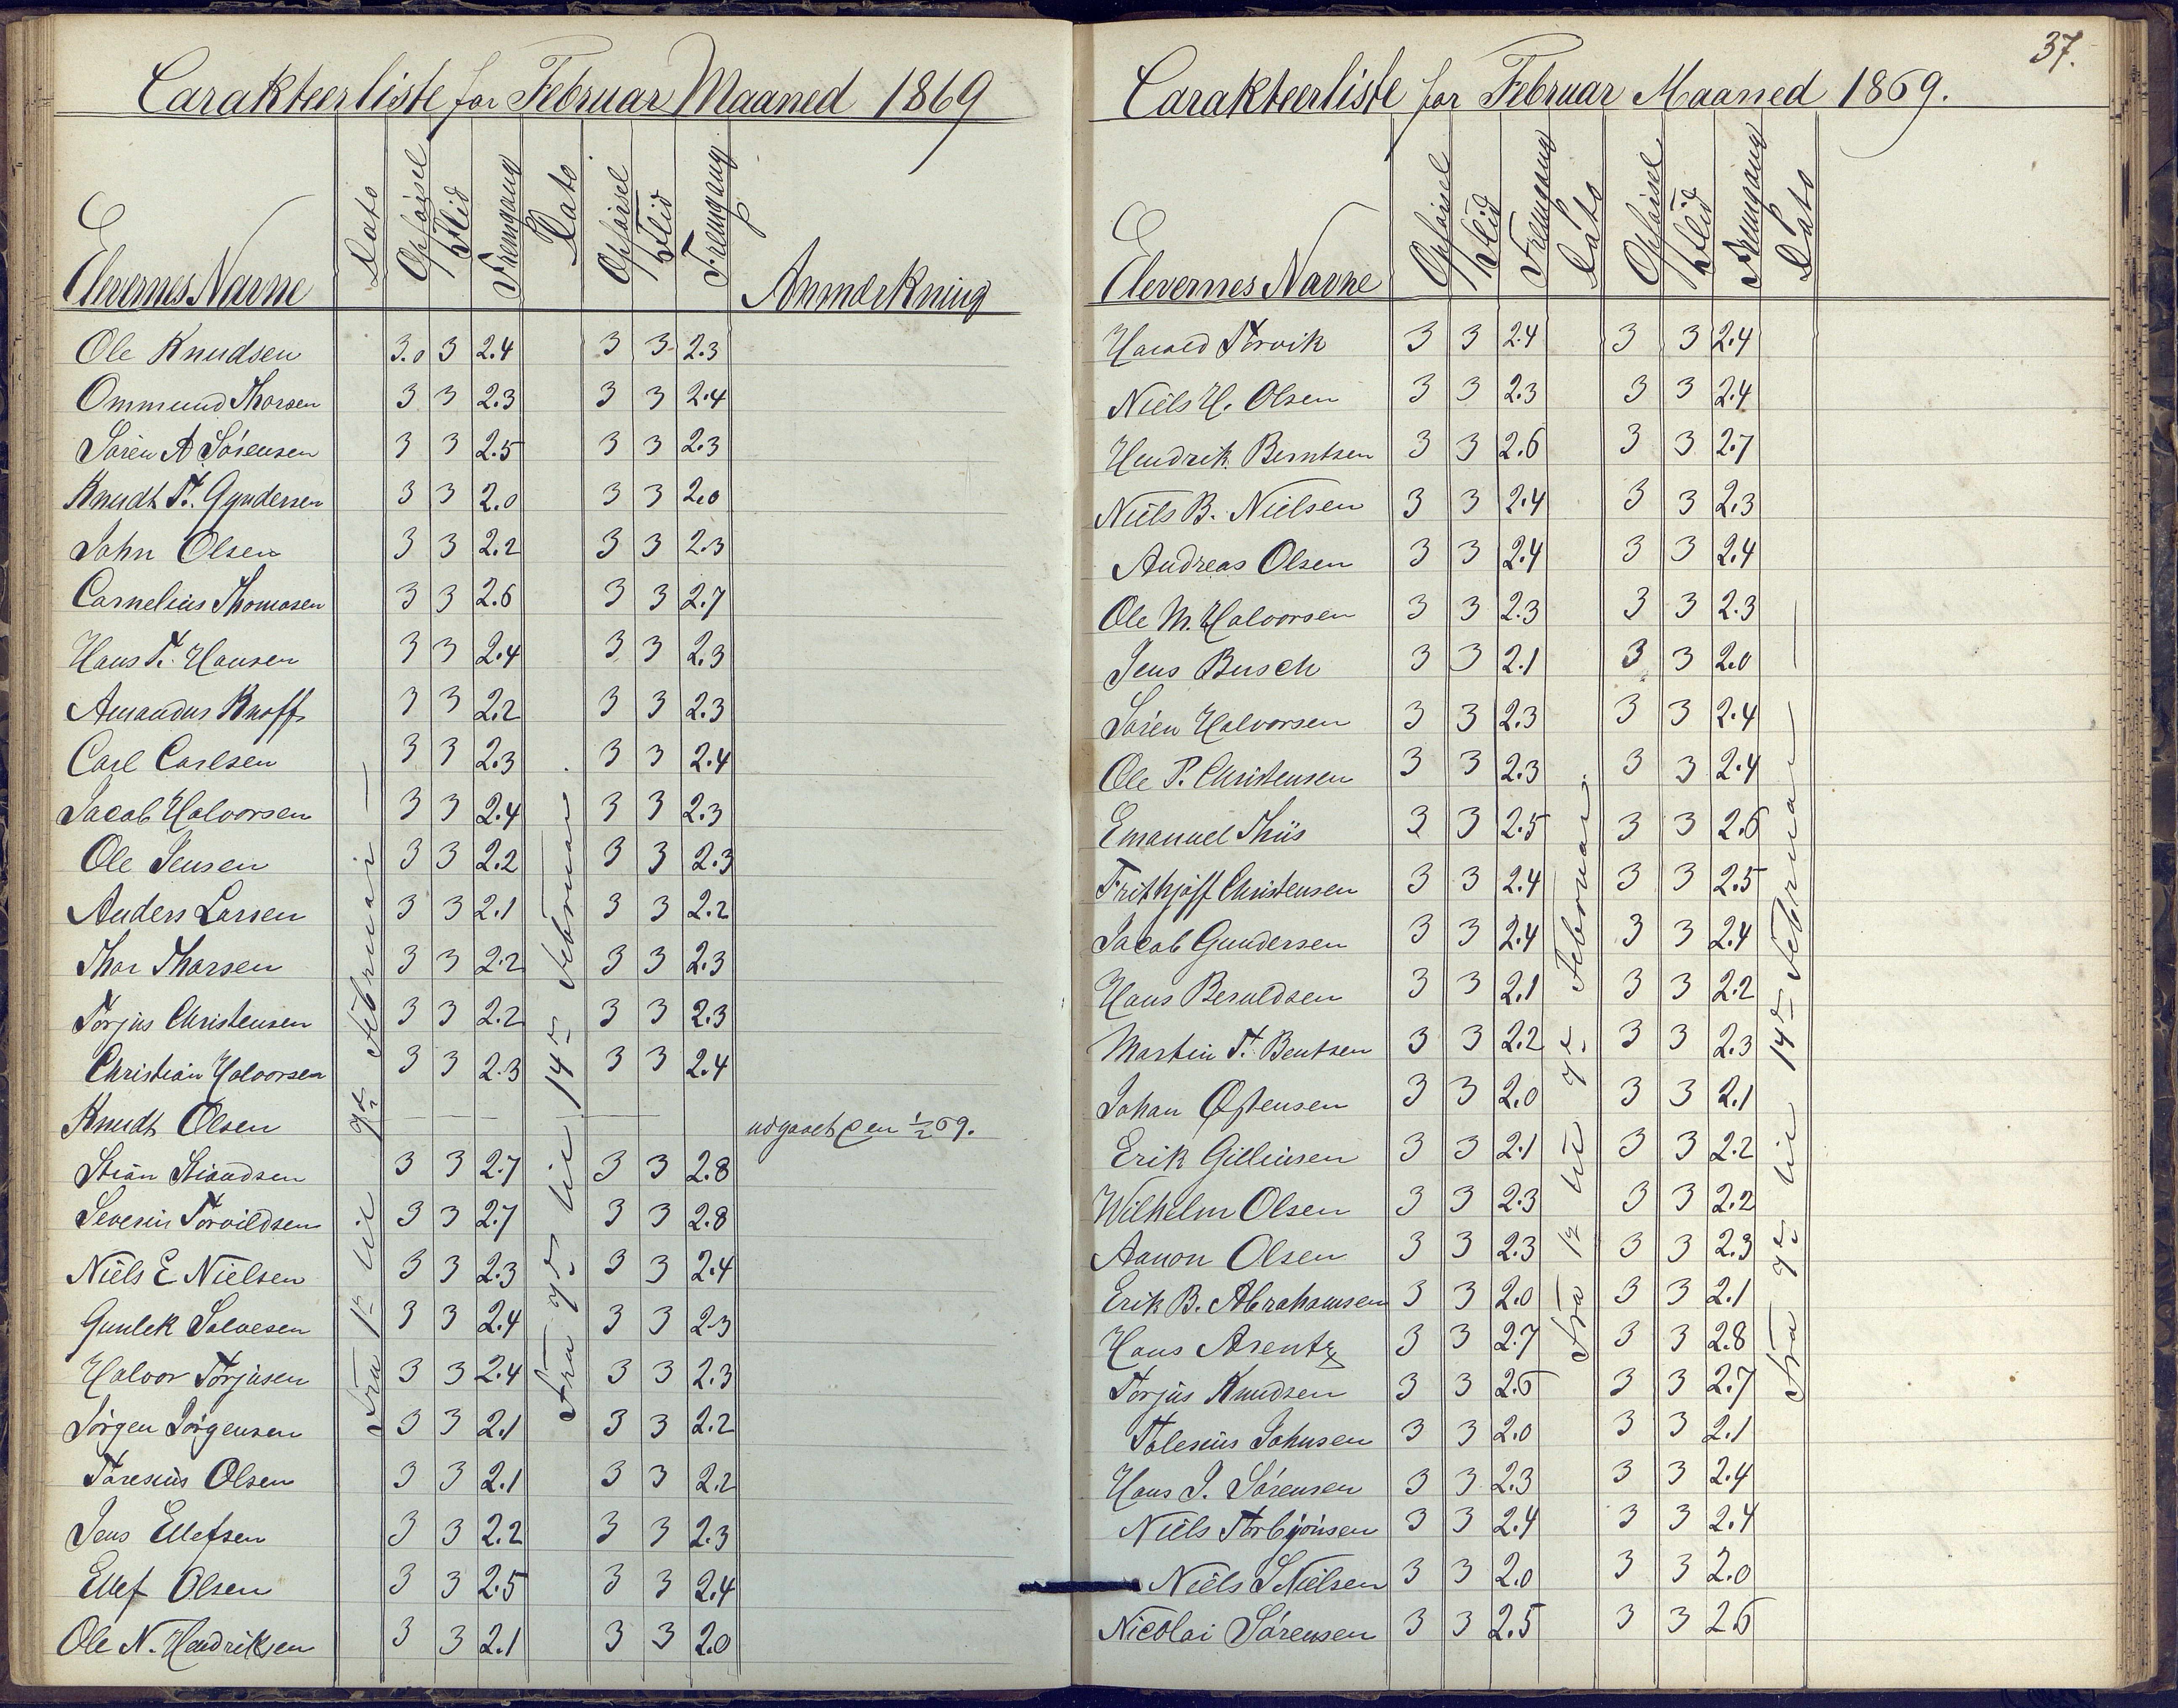 Carakteerliste for Februar Maaned 1869
Elevernes Navne Dato Opførsel Flid Fremgang Dato Opførsel Flid Fremgang Anmærkning
Ole Knudsen 3.0 3 2.4 3 3 2.3
Ommund Thorsen 3 3 2.3 3 3 2.4
Søren A Sørensen 3 3 2.5 3 3 2.3
Knudt T. Gundersen 3 3 2.0 3 3 2.0
John Olsen 3 3 2.2 3 3 2.3
Cornelius Thomasen 3 3 2.6 3 3 2.7
Hans T. Hansen 3 3 2.4 3 3 2.3
Amandus Knoff 3 3 2.2 3 3 2.3
Carl Carlsen 3 3 2.3 3 3 2.4
Jacob Halvorsen 3 3 2.4 3 3 2.3
Ole Jensen 3 3 2.2 3 3 2.3
Anders Larsen 3 3 2.1 3 3 2.2
Thor Thorsen 3 3 2.2 3 3 2.3
Torjus Christensen 3 3 2.2 3 3 2.3
Christian Halvorsen 3 3 2.3 3 3 2.4
Knudt Olsen — — — — — udgaaet den 1/2 69.
Stian Stiandsen 3 3 2.7 3 3 2.8
Severin Torvildsen 3 3 2.7 3 3 2.8
Niels E Nielsen 3 3 2.3 3 3 2.4
Gunlek Salvesen 3 3 2.4 3 3 2.3
Halvor Torjusen 3 3 2.4 3 3 2.3
Jørgen Jørgensen 3 3 2.1 3 3 2.2
Taresius Olsen 3 3 2.1 3 3 2.2
Jens Ellefsen 3 3 2.2 3 3 2.3
Ellef Olsen 3 3 2.5 3 3 2.4
Ole N. Hendriksen 3 3 2.1 3 3 2.0
Fra 1ste til 7de Februar —
Fra 7de til 14de Februar.
37.
Carakteerliste for Februar Maaned 1869.
Elevernes Navne Opførsel Flid Fremgang Dato Opførsel Flid Fremgang Dato
Harald Torvik 3 3 2.4 3 3 2.4
Niels H. Olsen 3 3 2.3 3 3 2.4
Hendrik Berntsen 3 3 2.6 3 3 2.7
Niels B. Nielsen 3 3 2.4 3 3 2.3
Andreas Olsen 3 3 2.4 3 3 2.4
Ole M. Halvorsen 3 3 2.3 3 3 2.3
Jens Busch 3 3 2.1 3 3 2.0
Søren Halvorsen 3 3 2.3 3 3 2.4
Ole P. Christensen 3 3 2.3 3 3 2.4
Emanuel Thiis 3 3 2.5 3 3 2.6
Frithjoff Christensen 3 3 2.4 3 3 2.5
Jacob Gundersen 3 3 2.4 3 3 2.4
Hans Beruldsen 3 3 2.1 3 3 2.2
Martin T. Bentsen 3 3 2.2 3 3 2.3
Johan Østensen 3 3 2.0 3 3 2.1
Erik Gilleinsen 3 3 2.1 3 3 2.2
Wilhelm Olsen 3 3 2.3 3 3 2.2
Aanon Olsen 3 3 2.3 3 3 2.3
Erik B. Abrahamsen 3 3 2.0 3 3 2.1
Hans Arentz 3 3 2.7 3 3 2.8
Torjus Knudsen 3 3 2.6 3 3 2.7
Tolesius Johnsen 3 3 2.0 3 3 2.1
Hans J. Sørensen 3 3 2.3 3 3 2.4
Niels Torbjønsen 3 3 2.4 3 3 2.4
Niels S Nielsen 3 3 2.0 3 3 2.0
Nicolai Sørensen 3 3 2.5 3 3 2.6
Fra 1ste til 7de Februar.
Fra 7de til 14de Februar —